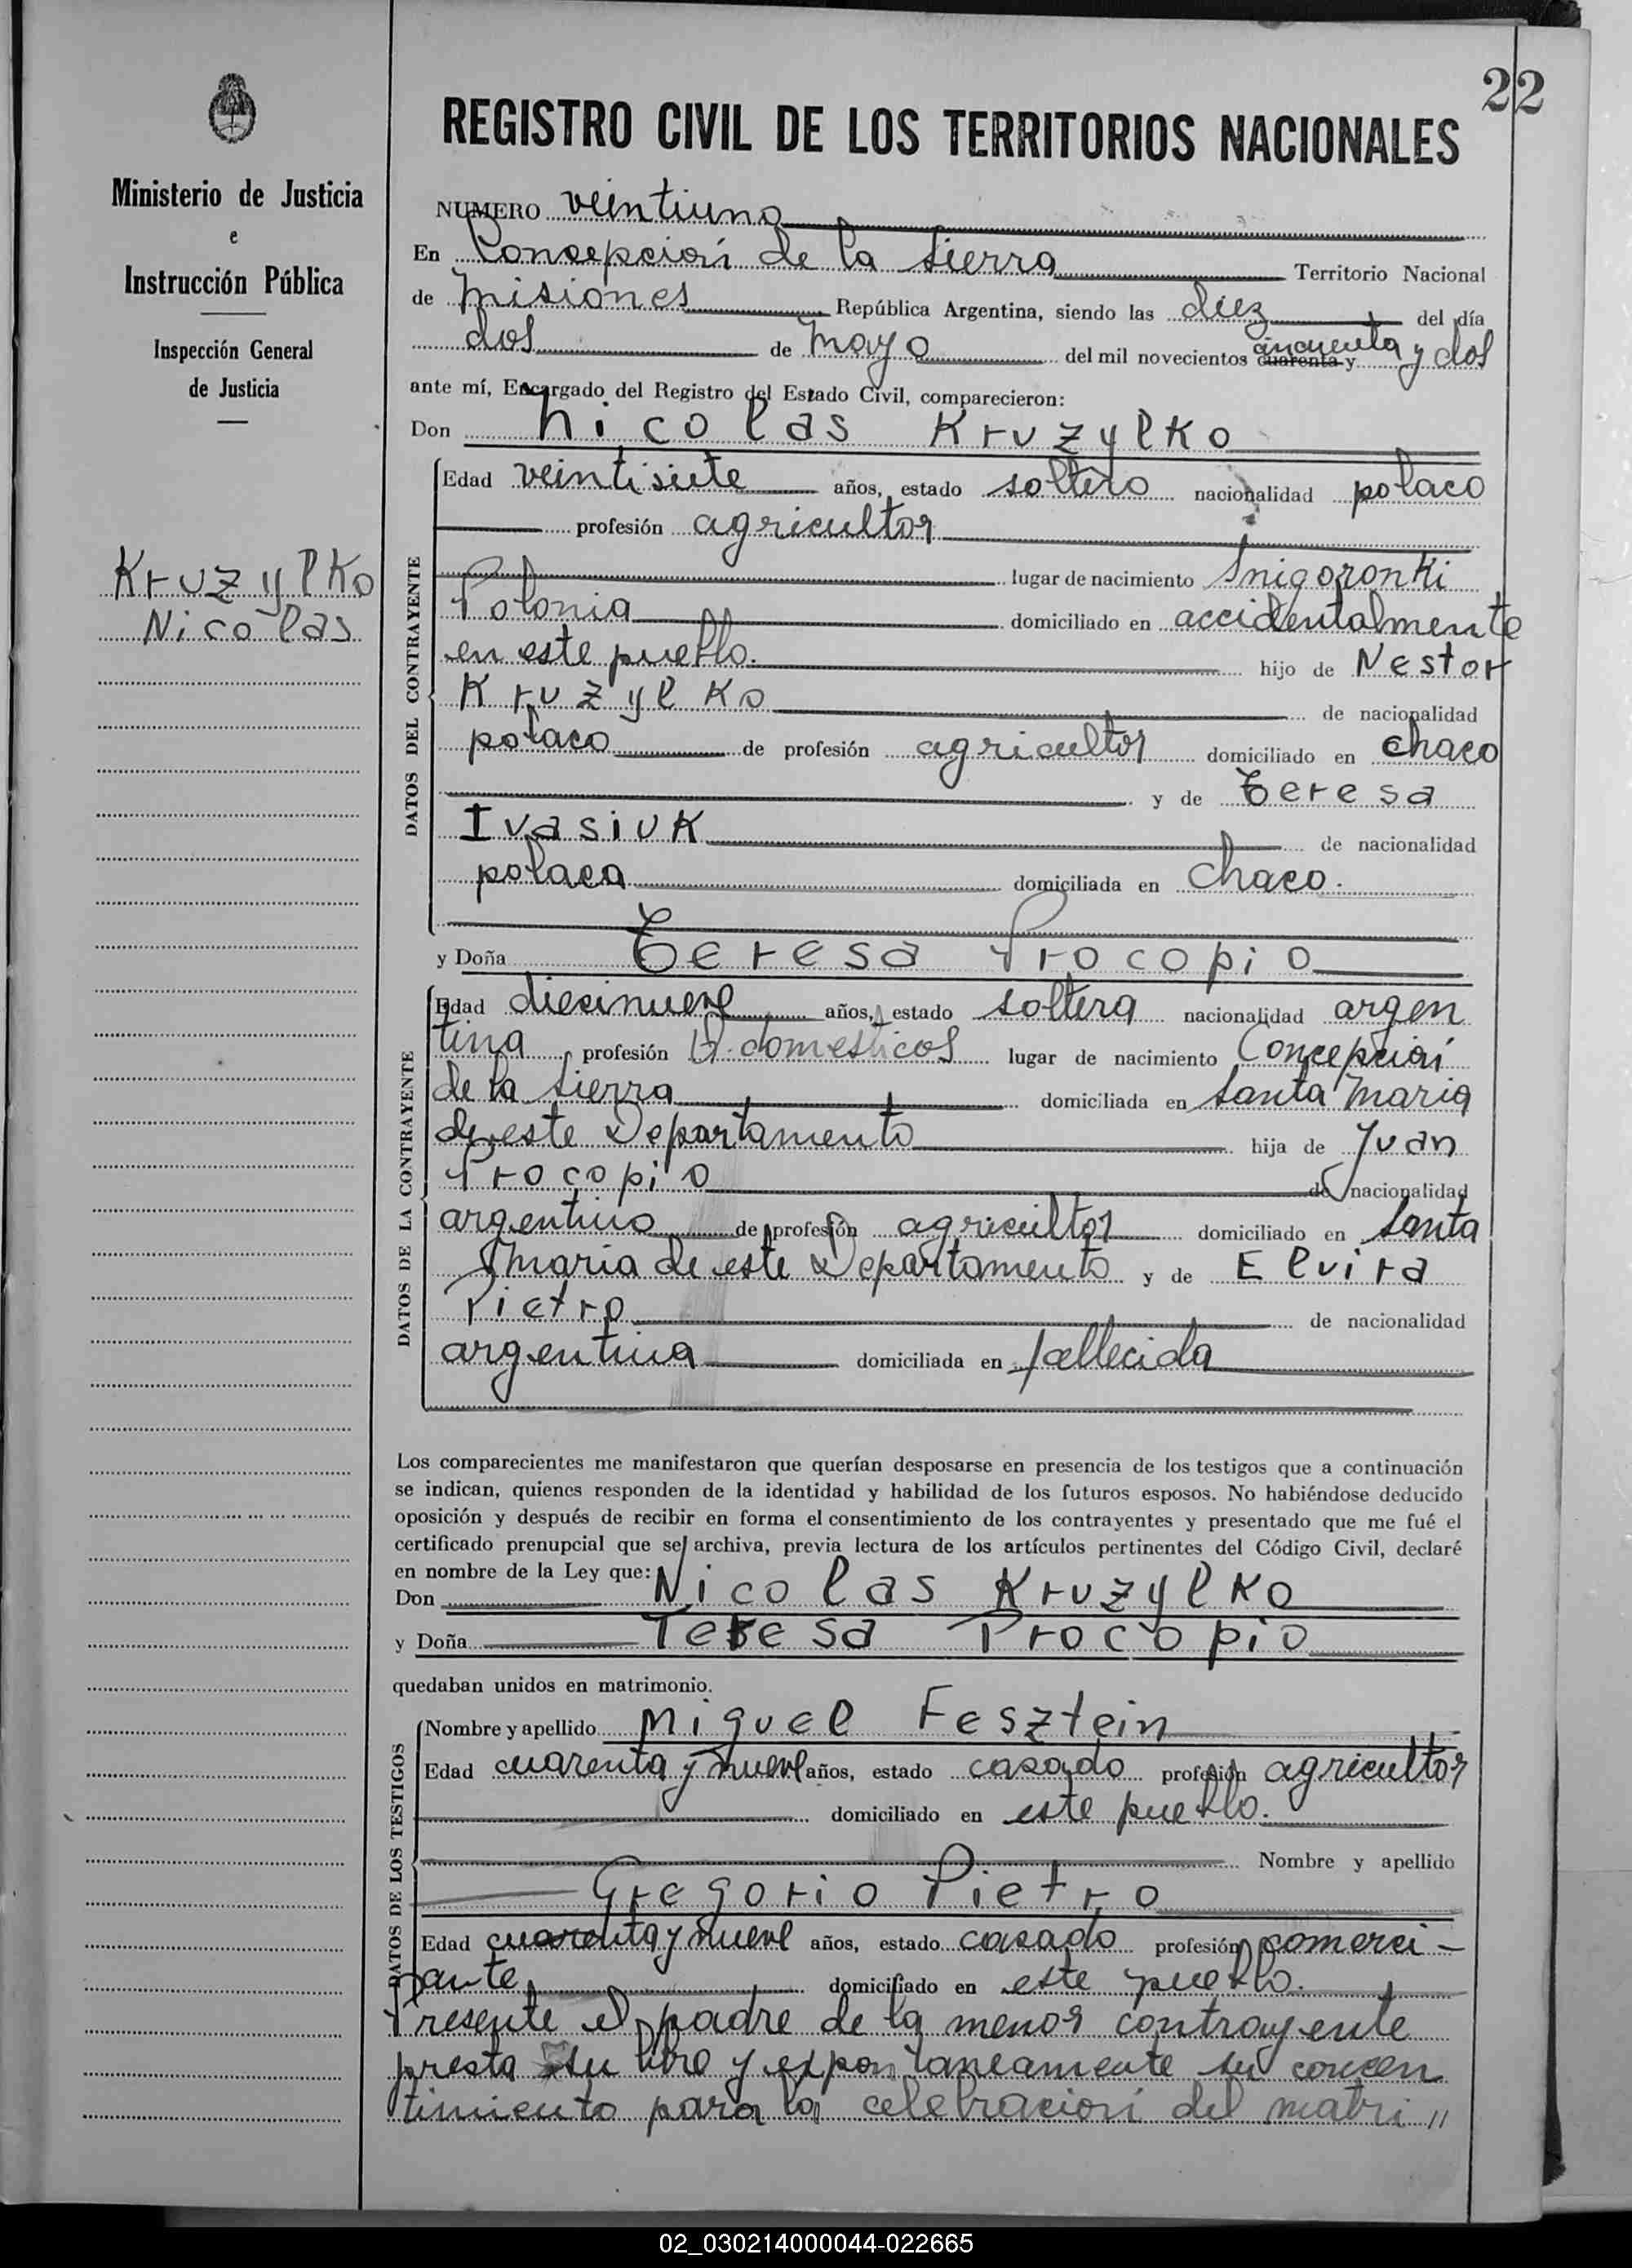 22
Ministerio de Justicia
e
Instrucción Pública
Inspección General
de Justicia
Kruzylko
Nicolas
REGISTRO CIVIL DE LOS TERRITORIOS NACIONALES
NUMERO veintiuno
En Concepción de la Sierra Territorio Nacional
de Misiones República Argentina, siendo las diez del día
dos de Mayo del mil novecientos cuarenta y cincuenta y dos
ante mí, Encargado del Registro del Estado Civil, comparecieron:
Don Nicolas Kruzylko
DATOS DEL CONTRAYENTE
Edad veintisiete años, estado soltero nacionalidad polaco
profesión agricultor
lugar de nacimiento Snigoronki
Polonia domiciliado en accidentalmente
en este pueblo. hijo de Nestor
Kruzylko de nacionalidad
polaco de profesión agricultor domiciliado en Chaco
y de Teresa
Ivasiuk de nacionalidad
polaca domiciliada en Chaco.
y Doña Teresa Procopio
DATOS DE LA CONTRAYENTE
Edad diecinueve años, estado soltera nacionalidad argen
tina profesión Q. domesticos lugar de nacimiento Concepción
de la Sierra domiciliada en Santa Maria
de este Departamento hija de Juan
Procopio de nacionalidad
argentino de profesión agricultor domiciliado en Santa
Maria de este Departamento y de Elvira
Pietro de nacionalidad
argentina domiciliada en fallecida
Los comparecientes me manifestaron que querían desposarse en presencia de los testigos que a continuación
se indican, quienes responden de la identidad y habilidad de los futuros esposos. No habiéndose deducido
oposición y después de recibir en forma el consentimiento de los contrayentes y presentado que me fué el
certificado prenupcial que se archiva, previa lectura de los artículos pertinentes del Código Civil, declaré
en nombre de la Ley que:
Don Nicolas Kruzylko
y Doña Teresa Procopio
quedaban unidos en matrimonio.
DATOS DE LOS TESTIGOS
Nombre y apellido Miguel Fesztein
Edad cuarenta y nueve años, estado casado profesión agricultor
domiciliado en este pueblo.
Nombre y apellido
Gregorio Pietro
Edad cuarenta y nueve años, estado casado profesión comerci-
ante domiciliado en este pueblo.
Presente el padre de la menor contrayente
presta su libre y expontaneamente su concen
timiento para la celebración del matri "
02_030214000044-022665